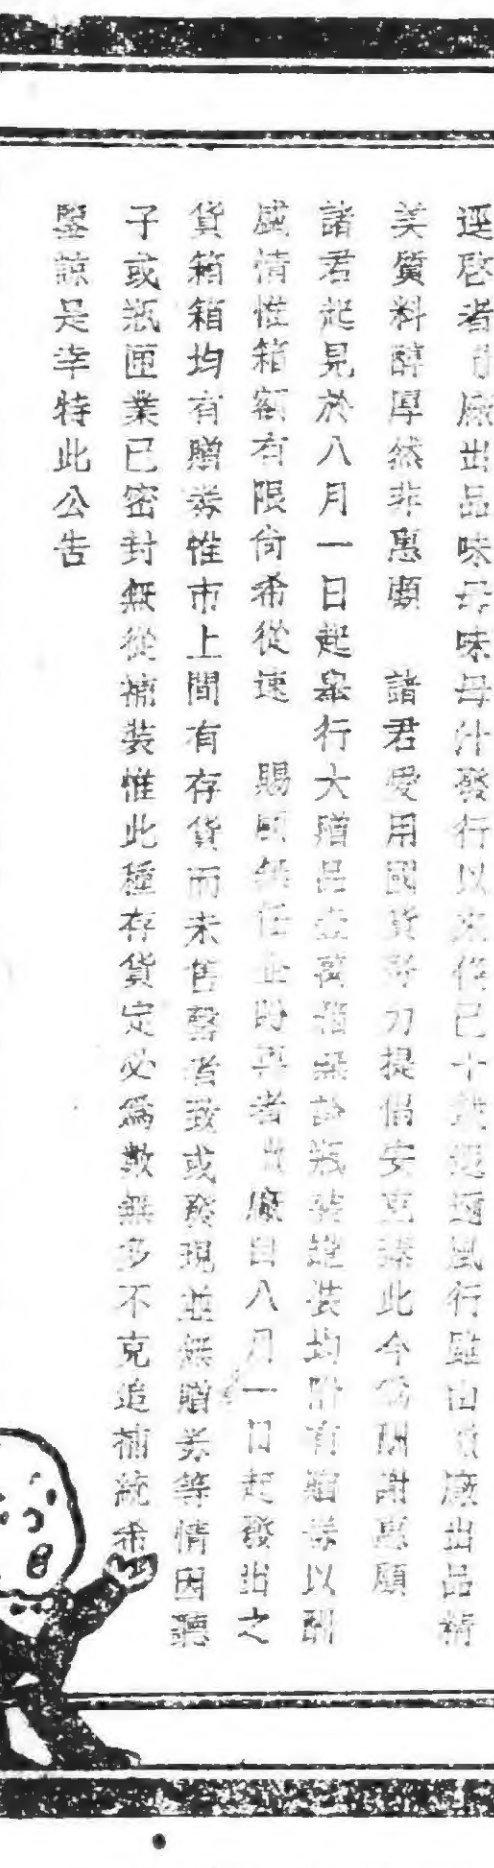 逕啓者廠出品味母味母汁發行以來已十載遐邇風行雖由廠出品精
美質料醇厚然非惠顧 諸君愛用國貨努力提倡安克臻此今爲酬謝惠顧
諸君起見於八月一日起舉行大贈品壹萬箱無論瓶裝聽裝均附有贈券以酬
盛情惟箱額有限尙希從速 賜顧無任企盼再者廠自八月一日起發出之
貨箱箱均有贈券惟市上間有存貨而未售罄者致或發現並無贈券等情因聽
子或瓶匣業已密封無從補裝惟此種存貨定必爲數無多不克追補統希
鑒諒是幸特此公告